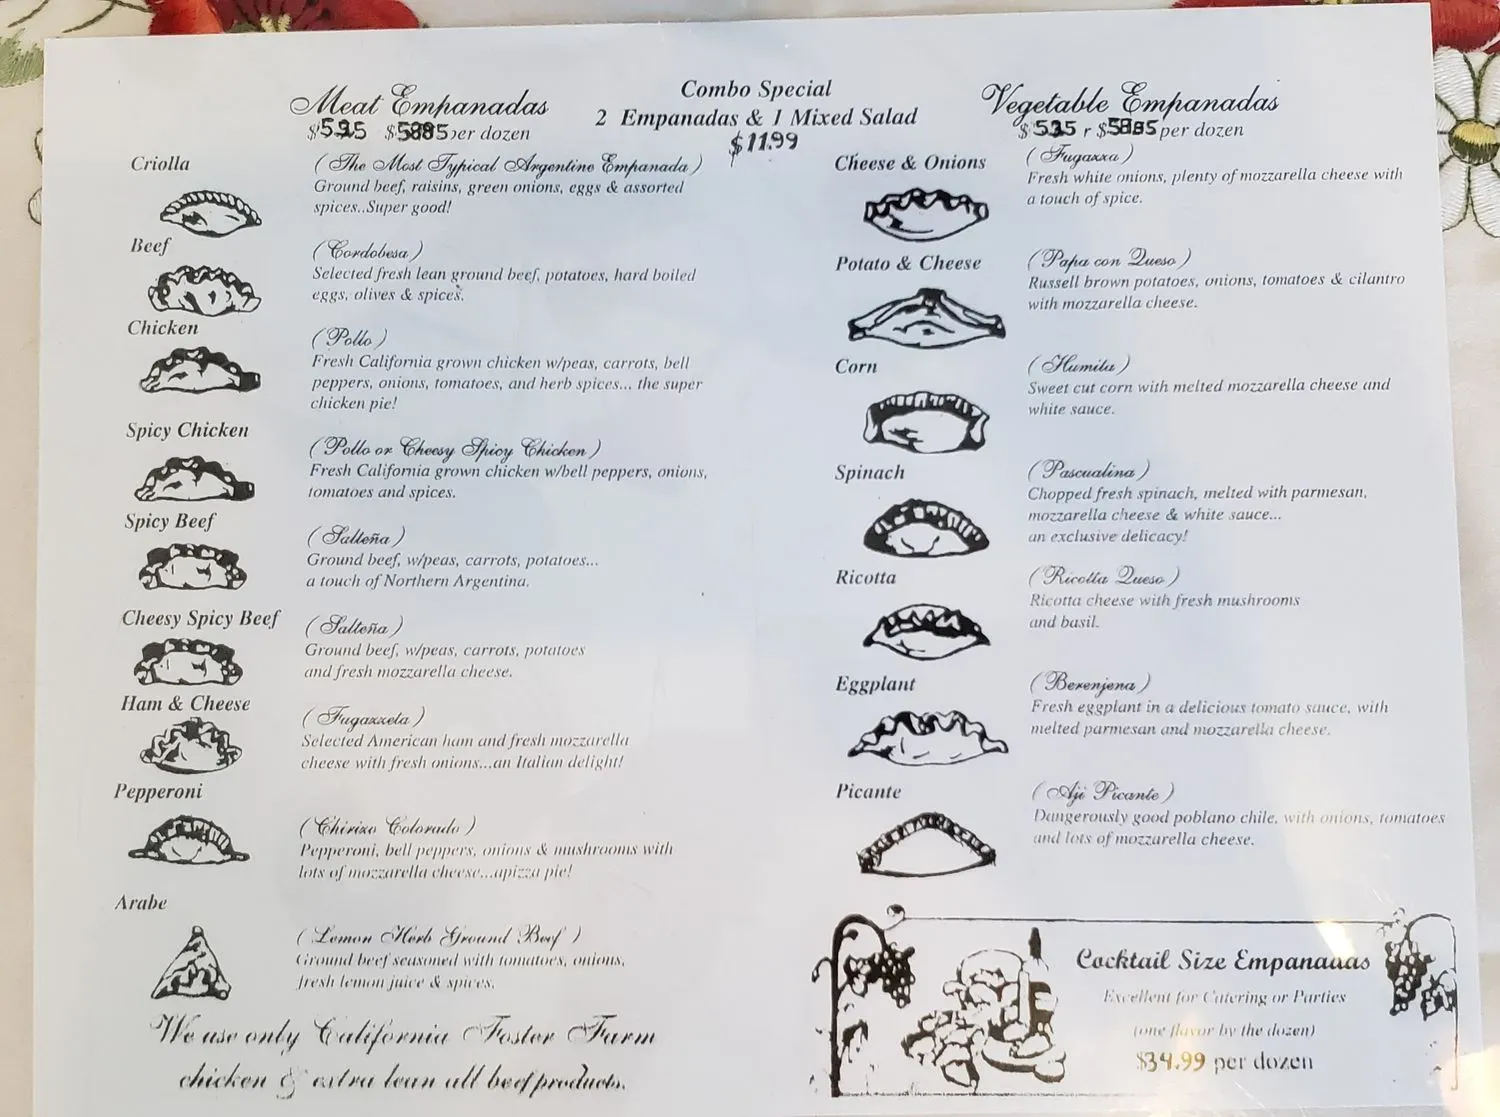 Meat Empanadas
per dozen
Criolla
( The Most Typical Argentine Empanada )
Ground beef, raisins, green onions, eggs & assorted
spices..Super good!
Beef
( Cordobesa )
Selected fresh lean ground beef, potatoes, hard boiled
eggs, olives & spices.
Chicken
( Pollo )
Fresh California grown chicken w/peas, carrots, bell
peppers, onions, tomatoes, and herb spices... the super
chicken pie!
Spicy Chicken
( Pollo or Cheesy Spicy Chicken )
Fresh California grown chicken w/bell peppers, onions,
tomatoes and spices.
Spicy Beef
( Salteña )
Ground beef, w/peas, carrots, potatoes...
a touch of Northern Argentina.
Cheesy Spicy Beef
( Salteña )
Ground beef, w/peas, carrots, potatoes
and fresh mozzarella cheese.
Ham & Cheese
( Fugazzeta )
Selected American ham and fresh mozzarella
cheese with fresh onions...an Italian delight!
Pepperoni
( Chirizo Colorado )
Pepperoni, bell peppers, onions & mushrooms with
lots of mozzarella cheese...apizza pie!
Arabe
( Lemon Herb Ground Beef )
Ground beef seasoned with tomatoes, onions,
fresh lemon juice & spices.
We use only California Foster Farm
chicken & extra lean all beef products.
Combo Special
2 Empanadas & 1 Mixed Salad
$11.99
Vegetable Empanadas
per dozen
Cheese & Onions
( Fugazza )
Fresh white onions, plenty of mozzarella cheese with
a touch of spice.
Potato & Cheese
( Papa con Queso )
Russell brown potatoes, onions, tomatoes & cilantro
with mozzarella cheese.
Corn
( Humita )
Sweet cut corn with melted mozzarella cheese and
white sauce.
Spinach
( Pascualina )
Chopped fresh spinach, melted with parmesan,
mozzarella cheese & white sauce...
an exclusive delicacy!
Ricotta
( Ricotta Queso )
Ricotta cheese with fresh mushrooms
and basil.
Eggplant
( Berenjena )
Fresh eggplant in a delicious tomato sauce, with
melted parmesan and mozzarella cheese.
Picante
( Aji Picante )
Dangerously good poblano chile, with onions, tomatoes
and lots of mozzarella cheese.
Cocktail Size Empanadas
Excellent for Catering or Parties
(one flavor by the dozen)
$34.99 per dozen